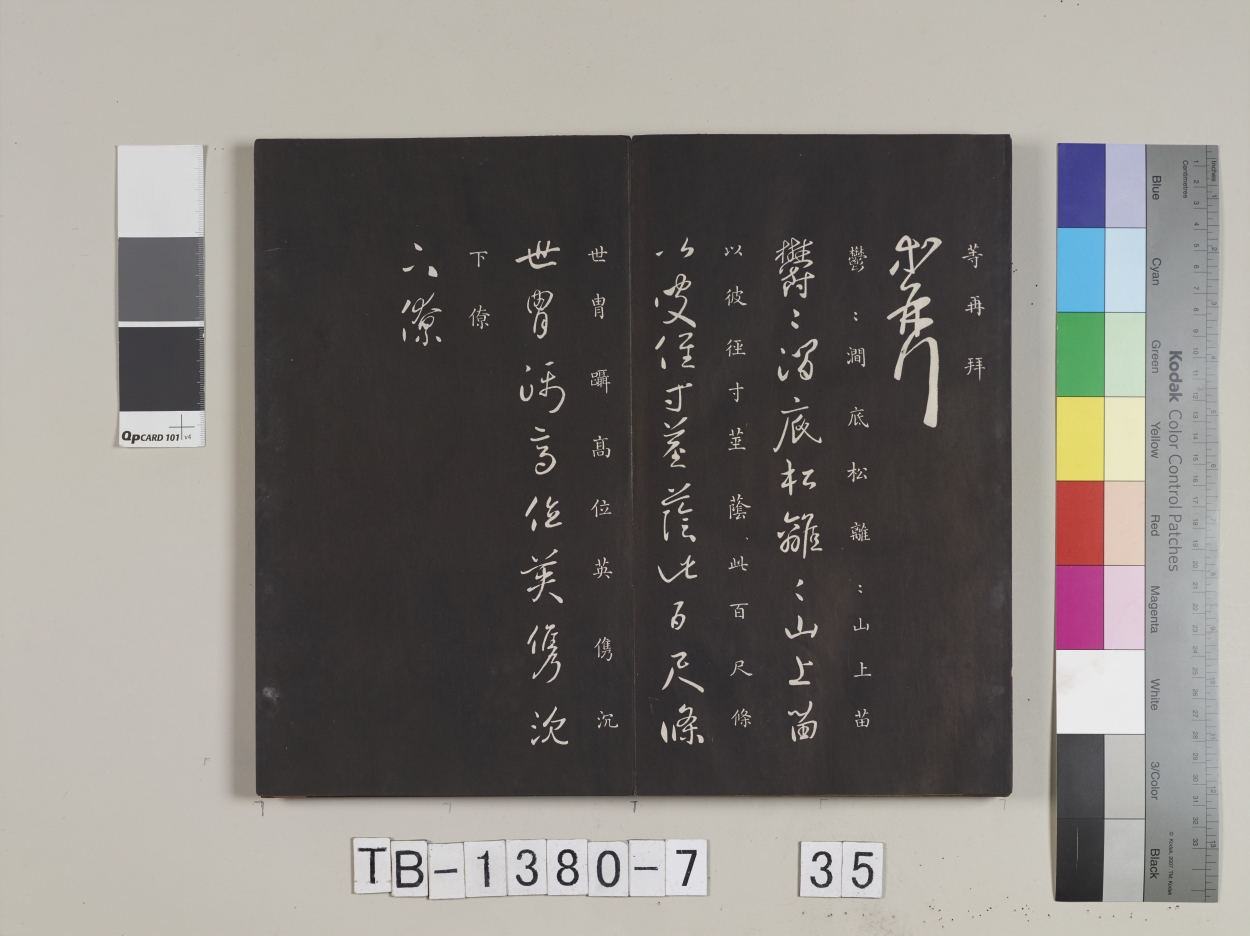 等再拜
等再拜
鬱〻澗底松離〻山上苗
鬱〻澗底松離〻山上苗
以彼徑寸莖蔭此百尺條
以彼徑寸莖蔭此百尺條
世冑躡髙位英儁沉
世冑躡高位英儁沉
下僚
下僚
TB-1380-7 35
QPCARD 101 v4
Kodak Color Control Patches
Blue
Cyan
Green
Yellow
Red
Magenta
White
3/Color
Black
Inches
Centimetres
© Kodak, 2007 TM: Kodak